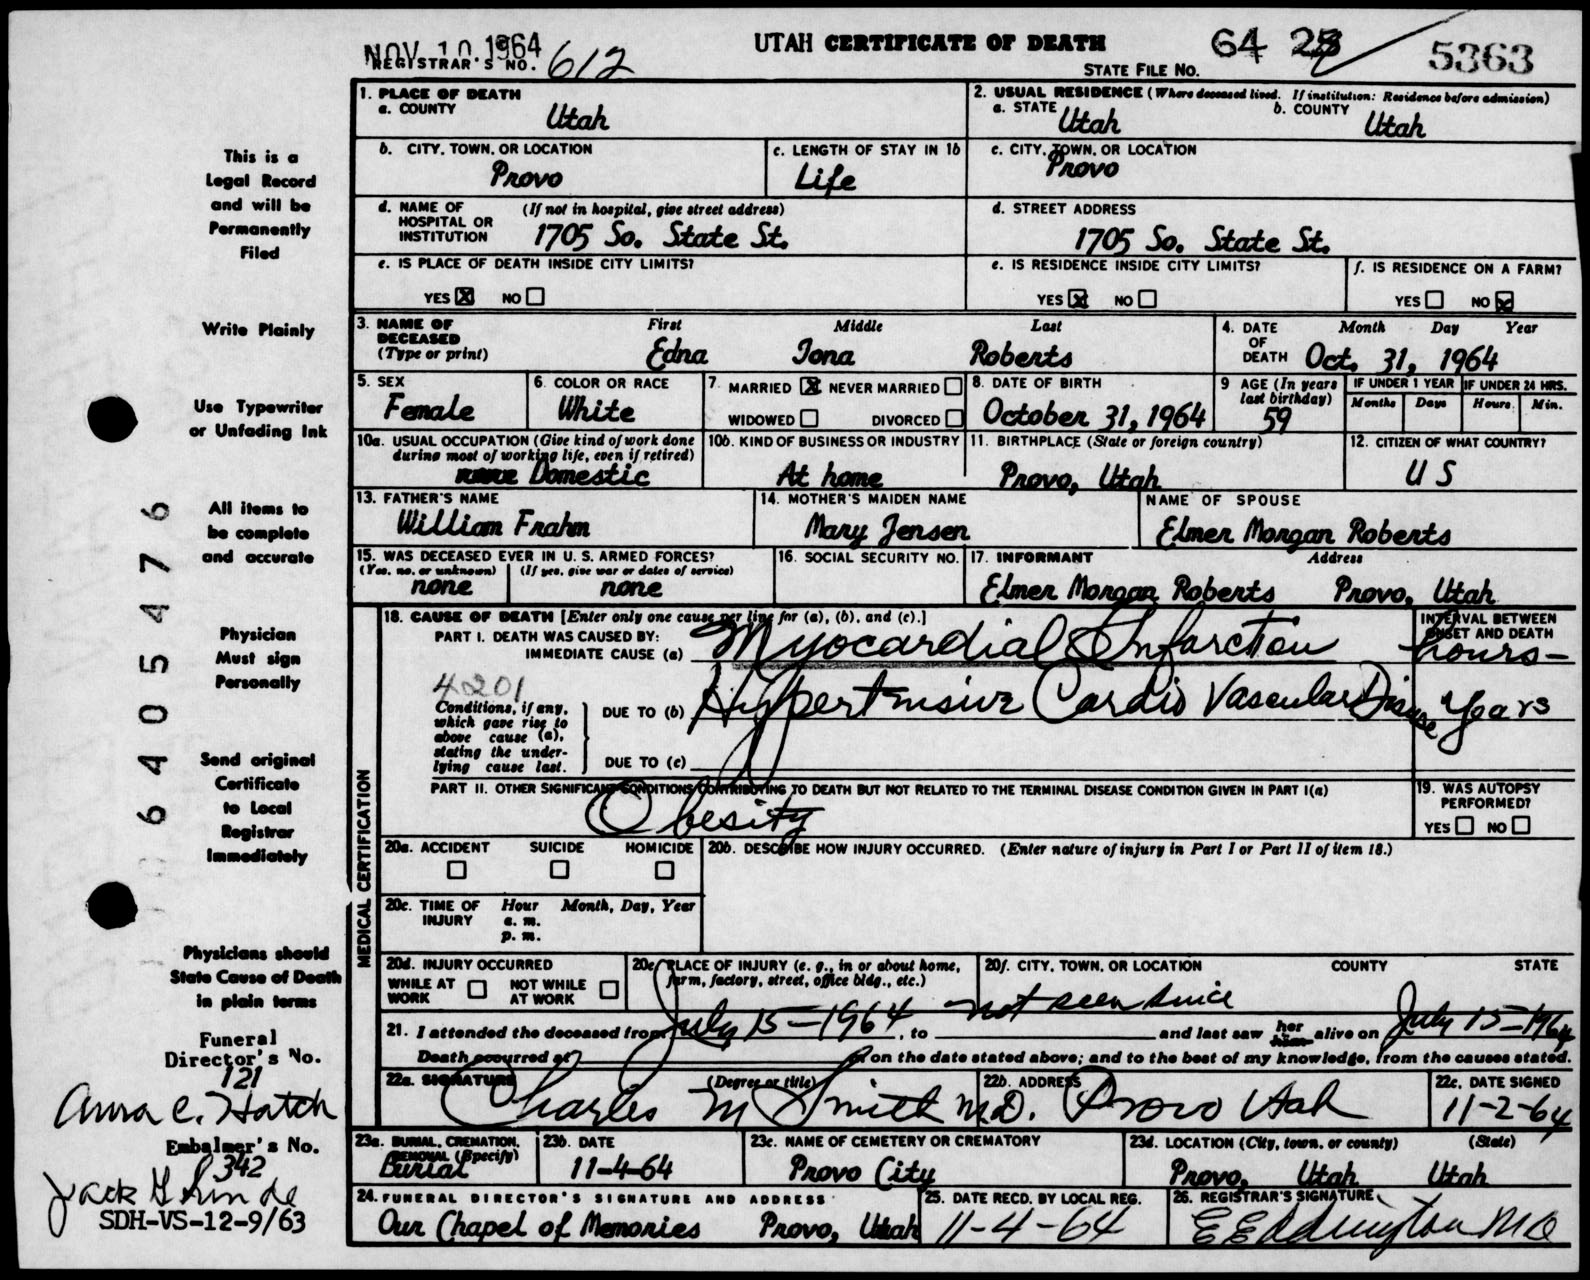 NOV 10 1964
UTAH CERTIFICATE OF DEATH
64 28
5363
REGISTRAR'S NO. 612
STATE FILE NO.
1. PLACE OF DEATH
a. COUNTY
Utah
2. USUAL RESIDENCE (Where deceased lived. If institution: Residence before admission)
a. STATE
Utah
b. COUNTY
Utah
b. CITY, TOWN, OR LOCATION
Provo
c. LENGTH OF STAY IN 1b
Life
c. CITY, TOWN, OR LOCATION
Provo
d. NAME OF HOSPITAL OR INSTITUTION
(If not in hospital, give street address)
1705 So. State St.
d. STREET ADDRESS
1705 So. State St.
e. IS PLACE OF DEATH INSIDE CITY LIMITS?
YES X NO
e. IS RESIDENCE INSIDE CITY LIMITS?
YES X NO
f. IS RESIDENCE ON A FARM?
YES NO X
3. NAME OF DECEASED
(Type or print)
First Middle Last
Edna Iona Roberts
4. DATE OF DEATH
Month Day Year
Oct. 31, 1964
5. SEX
Female
6. COLOR OR RACE
White
7. MARRIED X NEVER MARRIED
WIDOWED DIVORCED
8. DATE OF BIRTH
October 31, 1964
9 AGE (In years last birthday)
59
IF UNDER 1 YEAR
Months Days
IF UNDER 24 HRS.
Hours Min.
10a. USUAL OCCUPATION (Give kind of work done during most of working life, even if retired)
Domestic
10b. KIND OF BUSINESS OR INDUSTRY
At home
11. BIRTHPLACE (State or foreign country)
Provo, Utah
12. CITIZEN OF WHAT COUNTRY?
U S
13. FATHER'S NAME
William Frahm
14. MOTHER'S MAIDEN NAME
Mary Jensen
NAME OF SPOUSE
Elmer Morgan Roberts
15. WAS DECEASED EVER IN U. S. ARMED FORCES?
(Yes, no, or unknown)
none
(If yes, give war or dates of service)
none
16. SOCIAL SECURITY NO.
17. INFORMANT Address
Elmer Morgan Roberts Provo, Utah
MEDICAL CERTIFICATION
18. CAUSE OF DEATH [Enter only one cause per line for (a), (b), and (c).]
PART I. DEATH WAS CAUSED BY:
IMMEDIATE CAUSE (a) Myocardial Infarction
INTERVAL BETWEEN ONSET AND DEATH
hours-
4201
Conditions, if any, which gave rise to above cause (a), stating the underlying cause last.
DUE TO (b) Hypertensive Cardio Vascular Disease
Years
DUE TO (c)
PART II. OTHER SIGNIFICANT CONDITIONS CONTRIBUTING TO DEATH BUT NOT RELATED TO THE TERMINAL DISEASE CONDITION GIVEN IN PART I(a)
Obesity
19. WAS AUTOPSY PERFORMED?
YES NO
20a. ACCIDENT SUICIDE HOMICIDE
20b. DESCRIBE HOW INJURY OCCURRED. (Enter nature of injury in Part I or Part II of item 18.)
20c. TIME OF INJURY
Hour Month, Day, Year
a. m.
p. m.
20d. INJURY OCCURRED
WHILE AT WORK NOT WHILE AT WORK
20e. PLACE OF INJURY (e. g., in or about home, farm, factory, street, office bldg., etc.)
20f. CITY, TOWN, OR LOCATION COUNTY STATE
21. I attended the deceased from July 15-1964, to not seen since and last saw her him alive on July 15-1964
Death occurred at on the date stated above; and to the best of my knowledge, from the causes stated.
22a. SIGNATURE (Degree or title)
Charles M Smith M.D.
22b. ADDRESS
Provo Utah
22c. DATE SIGNED
11-2-64
23a. BURIAL, CREMATION, REMOVAL (Specify)
Burial
23b. DATE
11-4-64
23c. NAME OF CEMETERY OR CREMATORY
Provo City
23d. LOCATION (City, town, or county) (State)
Provo, Utah Utah
24. FUNERAL DIRECTOR'S SIGNATURE AND ADDRESS
Our Chapel of Memories Provo, Utah
25. DATE RECD. BY LOCAL REG.
11-4-64
26. REGISTRAR'S SIGNATURE
E E Eddington MD
This is a
Legal Record
and will be
Permanently
Filed
Write Plainly
Use Typewriter
or Unfading Ink
All items to
be complete
and accurate
Physician
Must sign
Personally
Send original
Certificate
to Local
Registrar
Immediately
Physicians should
State Cause of Death
in plain terms
Funeral
Director's No.
121
Anna C. Hatch
Embalmer's No.
342
SDH-VS-12-9/63
6405476